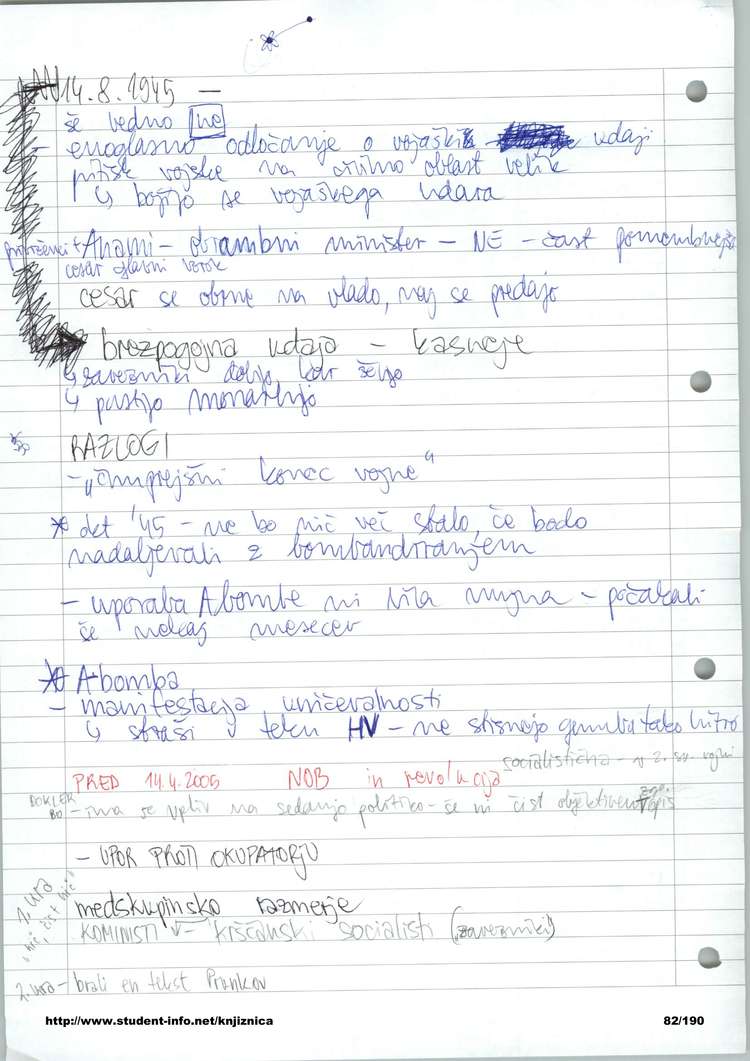 14.8.1945 —
še vedno ne
- enoglasno odločanje o vojaški vdaji
pritisk vojske na civilno oblast velik
↳ bojijo se vojaškega udara
+ Anami - obrambni minister - NE - čast pomembnejša
cesar glavni
cesar se obrne na vlado, naj se predajo
→ brezpogojna vdaja - kasneje
↳ zavezniki dobijo, kar želijo
↳ pustijo monarhijo
RAZLOGI
- „čimprejšni konec vojne“
* okt '45 - ne bo nič več stalo, če bodo
nadaljevali z bombandiranjem
- uporaba A bombe ni bila nujna - počakali
še nekaj mesecev
* A-bomba
- manifestacija uničevalnosti
↳ straši v teku HV - ne stisnejo gumba tako hitro
PRED 14.4.2005 NOB in revolucija socialistična - v 2. sv. vojni
DOKLER BO - ima še vpliv na sedanjo politiko - še ni čist objektiven zgo. opis
- UPOR PROTI OKUPATORJU
1. ura
„nič, čist nič“
medskupinsko razmerje
KOMINISTI - krščanski socialisti (zavezniki)
2. ura - brali en tekst Prunkov
http://www.student-info.net/knjiznica 82/190